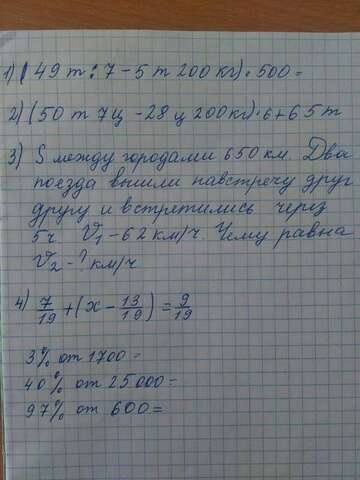 1) (49 т : 7 - 5 т 200 кг) · 500 =
2) (50 т 7 ц - 28 ц 200 кг) · 6 + 65 т
3) S между городами 650 км. Два
поезда вышли навстречу друг
другу и встретились через
5 ч. V1 - 62 км/ч. Чему равна
V2 - ? км/ч
4) 7/19 + (x - 13/19) = 9/19
3% от 1700 -
40% от 25000 -
97% от 600 =